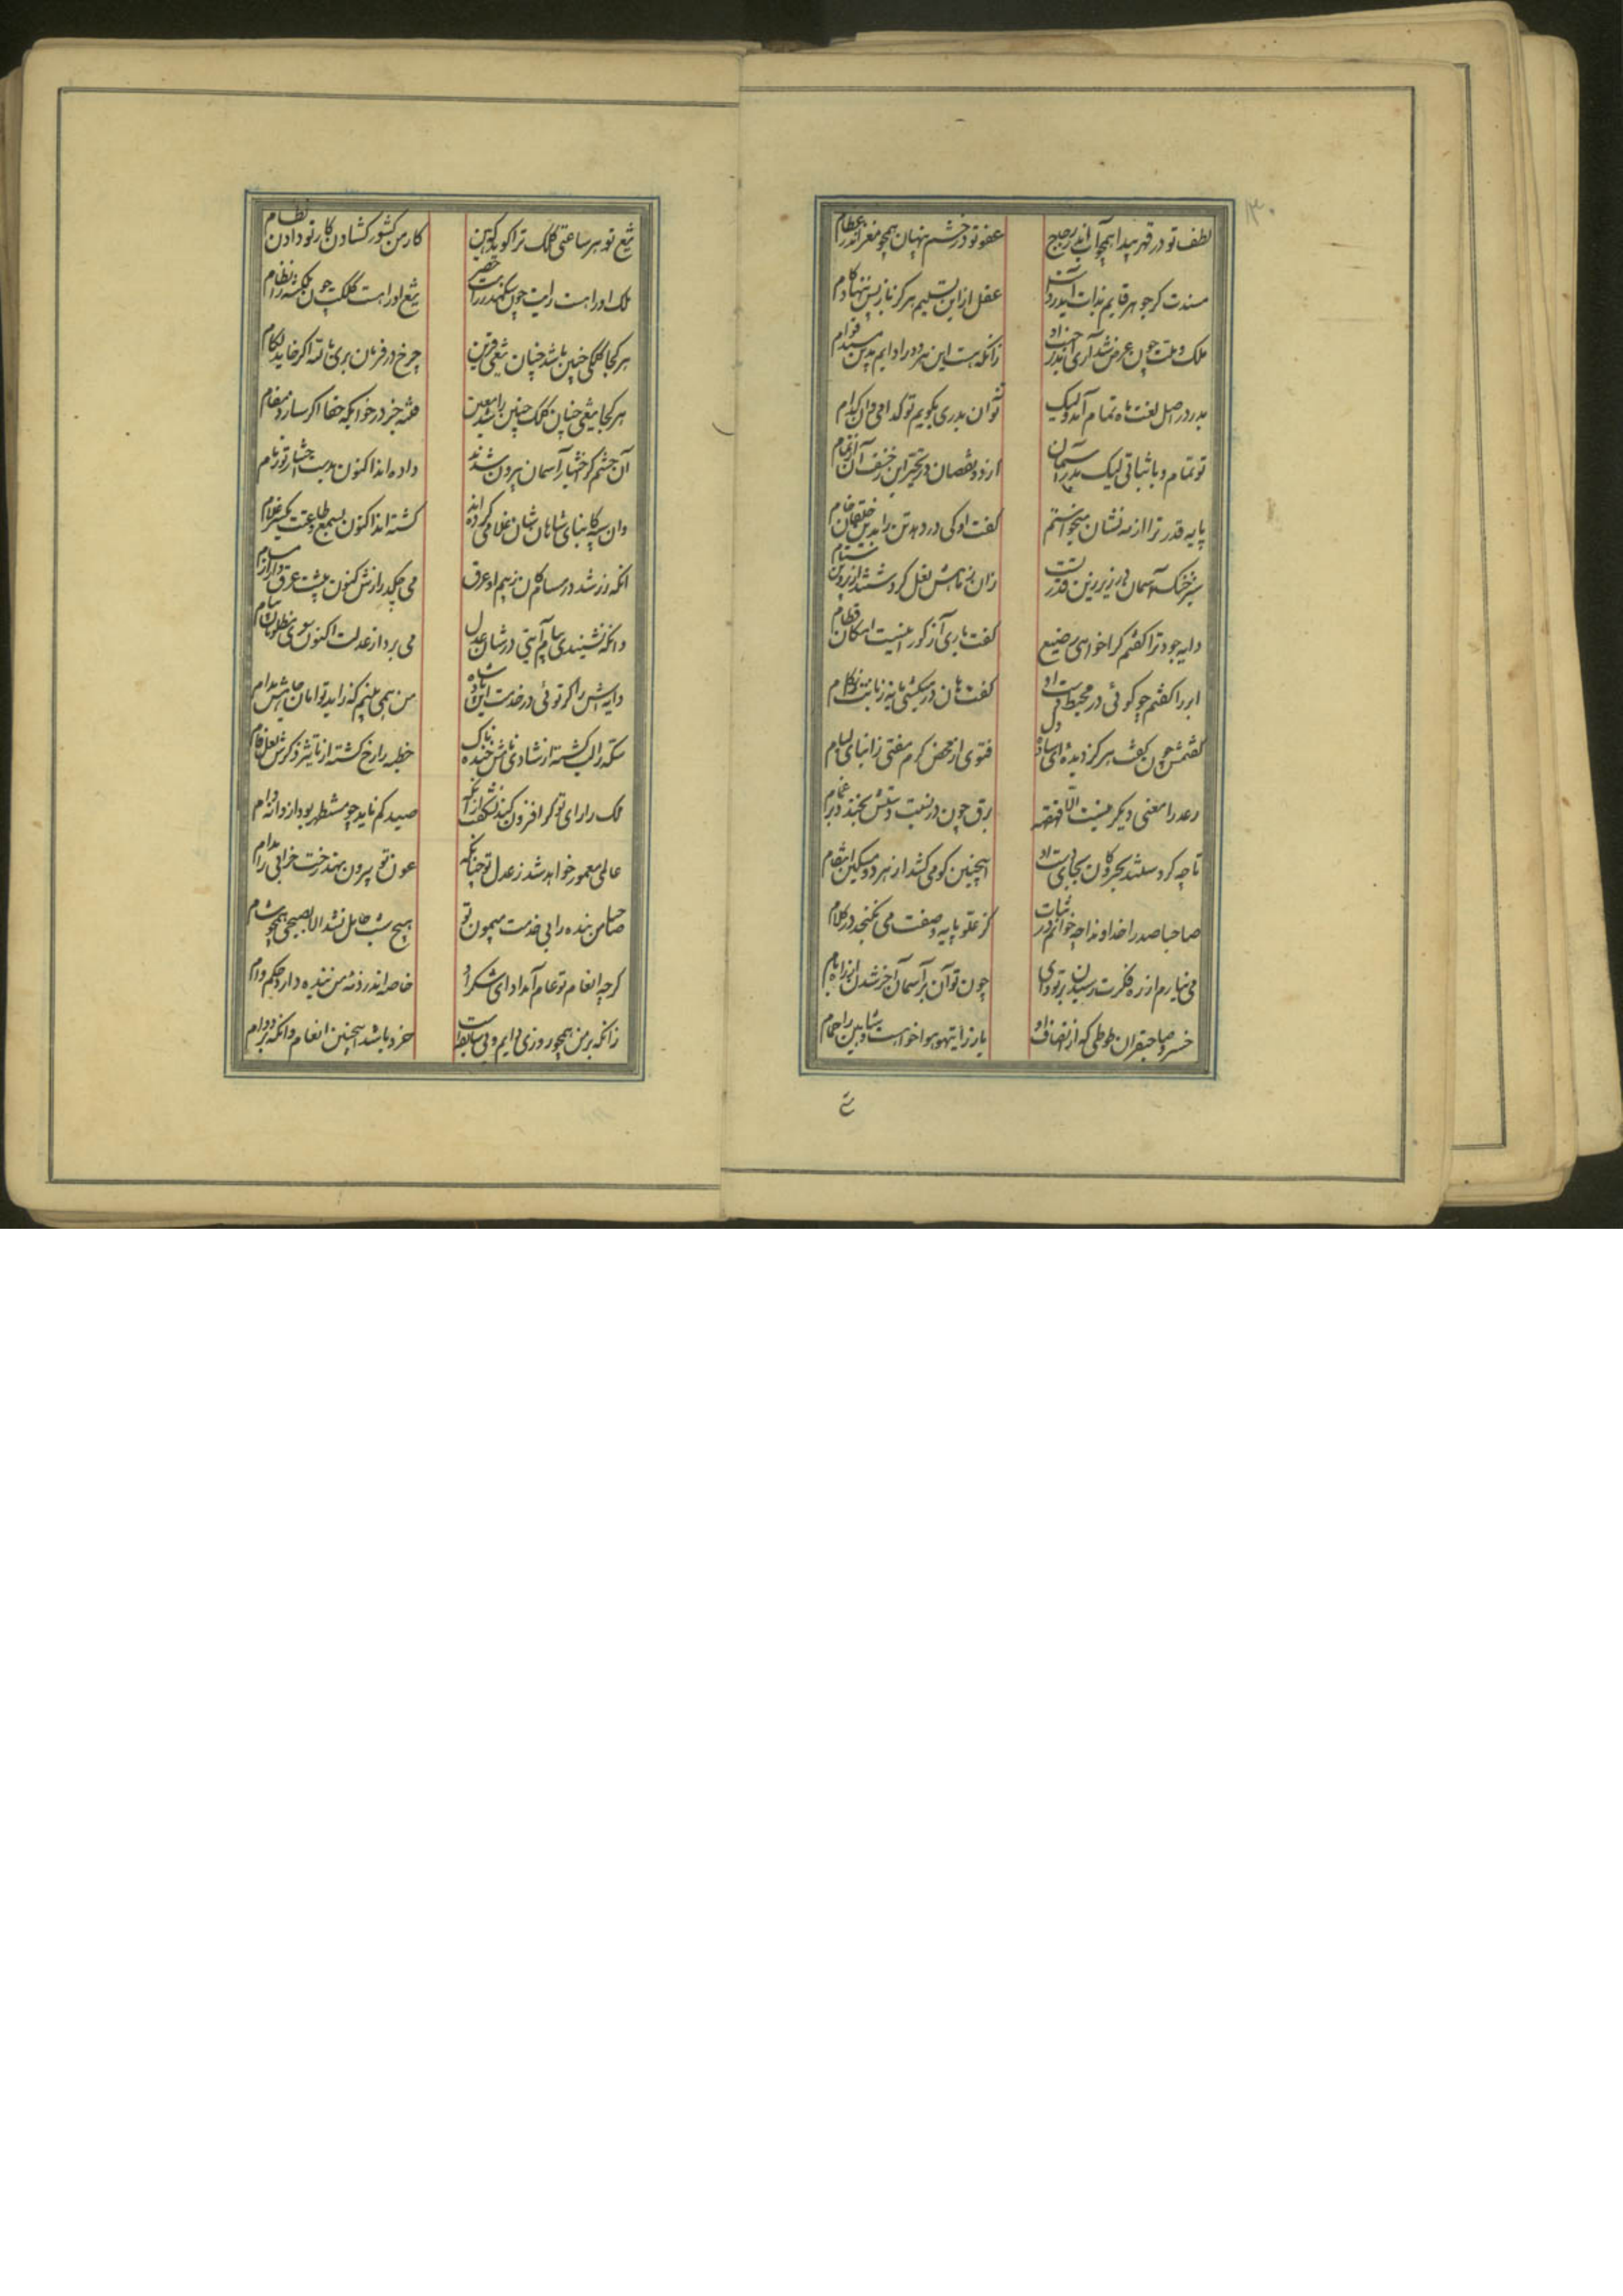 ۱۳۰
لطف تو در قهر پیدا همچو آب اندر زجاج
عفو تو در خشم پنهان همچو مغز اندر عظام
مسندت کر جوهر قایم بذات آید رواست
عقل ازین تسلیم هرکز باز پس ننهاد کام
ملک و ملت چون عرض شد آری اندر
زانکه هست این هر دو را دایم بدین مسند قوام
بدر در اصل لغت ماه تمام آمد ولیک
توان بدری بکویم تو کدامی وان کدام
تو تمام و با ثباتی لیک بدر آسمان
پایه قدر ترا از مه نشان میجواستم
کفت او کی در دهد تن را بدین
سبز خنک آسمان در زیر زین قدر تست
دایه جود ترا کفتم کرا خواهی رضیع
کفت باری آز کور انیست امکان فطام
ابر را کفتم چو کوئی در محیط دست او
کفت هان در میکشی یا نه زبانت را بکام
کفتمش چون کفش هرکز دیده ای
فتوی از محض کرم مفتی زابنای لیام
رعد را معنی دیکر نیست الا قهقهه
برق چون در نسبت دستش بخندد بر غمام
تا چه کردستند بحر و کان بجای دست او
اینچنین کو می کشد از هر دو مسکین انتقام
صاحبا صدرا خداوندا چه خوانم در ثنات
کز علو پایه وصفت می نکنجد در کلام
می نیارم از ره فکرت رسیدن بر تو وای
چون توان بر آسمان آخر شدن از راه بام
خسرو صاحبقران طوطی که از انصاف او
باز را تیهو هواخواهست و شاهین را حمام
تیغ تو هر ساعتی کلک ترا کوید که هین
کار من کشور کشادن کار تو دادن نظام
ملک او راهست رایت چون سکندر را خضر
تیغ او راهست کلکت چون نکین را نظام
هر کجا کلکی چنین باشد چنان تیغی قرین
چرخ در فرمان بری
هر کجا تیغی چنان کلک چنین باشد معین
فتنه جز در خوابکه حقا اکر سازد مقام
آن حشم کز اختیار آسمان بیرون شدند
داده اند اکنون بدست اختیار تو زمام
وان سپه کابنای شاهان شان غلامی کرده اند
کشته اند اکنون بسمع و طاعتت یکسر غلام
انکه زر شد در مسام کان ز بیم او عرق
می چکد رازش کنون پیشت عرق وار از مسام
وانکه نشنیدی پیام آیتی در شان عدل
می برد از عدلت اکنون سوی مظلومان پیام
دایه اش را کر توئی در خدمت این بادشاه
من همی بینم که زاید توامان
سکه را لب کشته از شادی نامش خنده ناک
خطبه را رخ کشته از تاثیر ذکرش لعل فام
ملک را رای تو کر افزون کند نشکفت از آنک
صید کم ناید چو مستظهر بود از دانه دام
عالمی معمور خواهد شد ز عدل تو چنانکه
عون تو بیرون نهد رخت خرابی را مدام
صاحبا من بنده را بی خدمت میمون تو
هیچ شب حامل نشد الا بصبحی همچو شام
کرچه انعام تو عام آمد ادای شکر او
خاصه اندر ذمه من بنده دارد حکم وام
زانکه بر من همچو روزی دایم و بی سابقه است
خرد باشد اینچنین انعام وانکه بر دوام